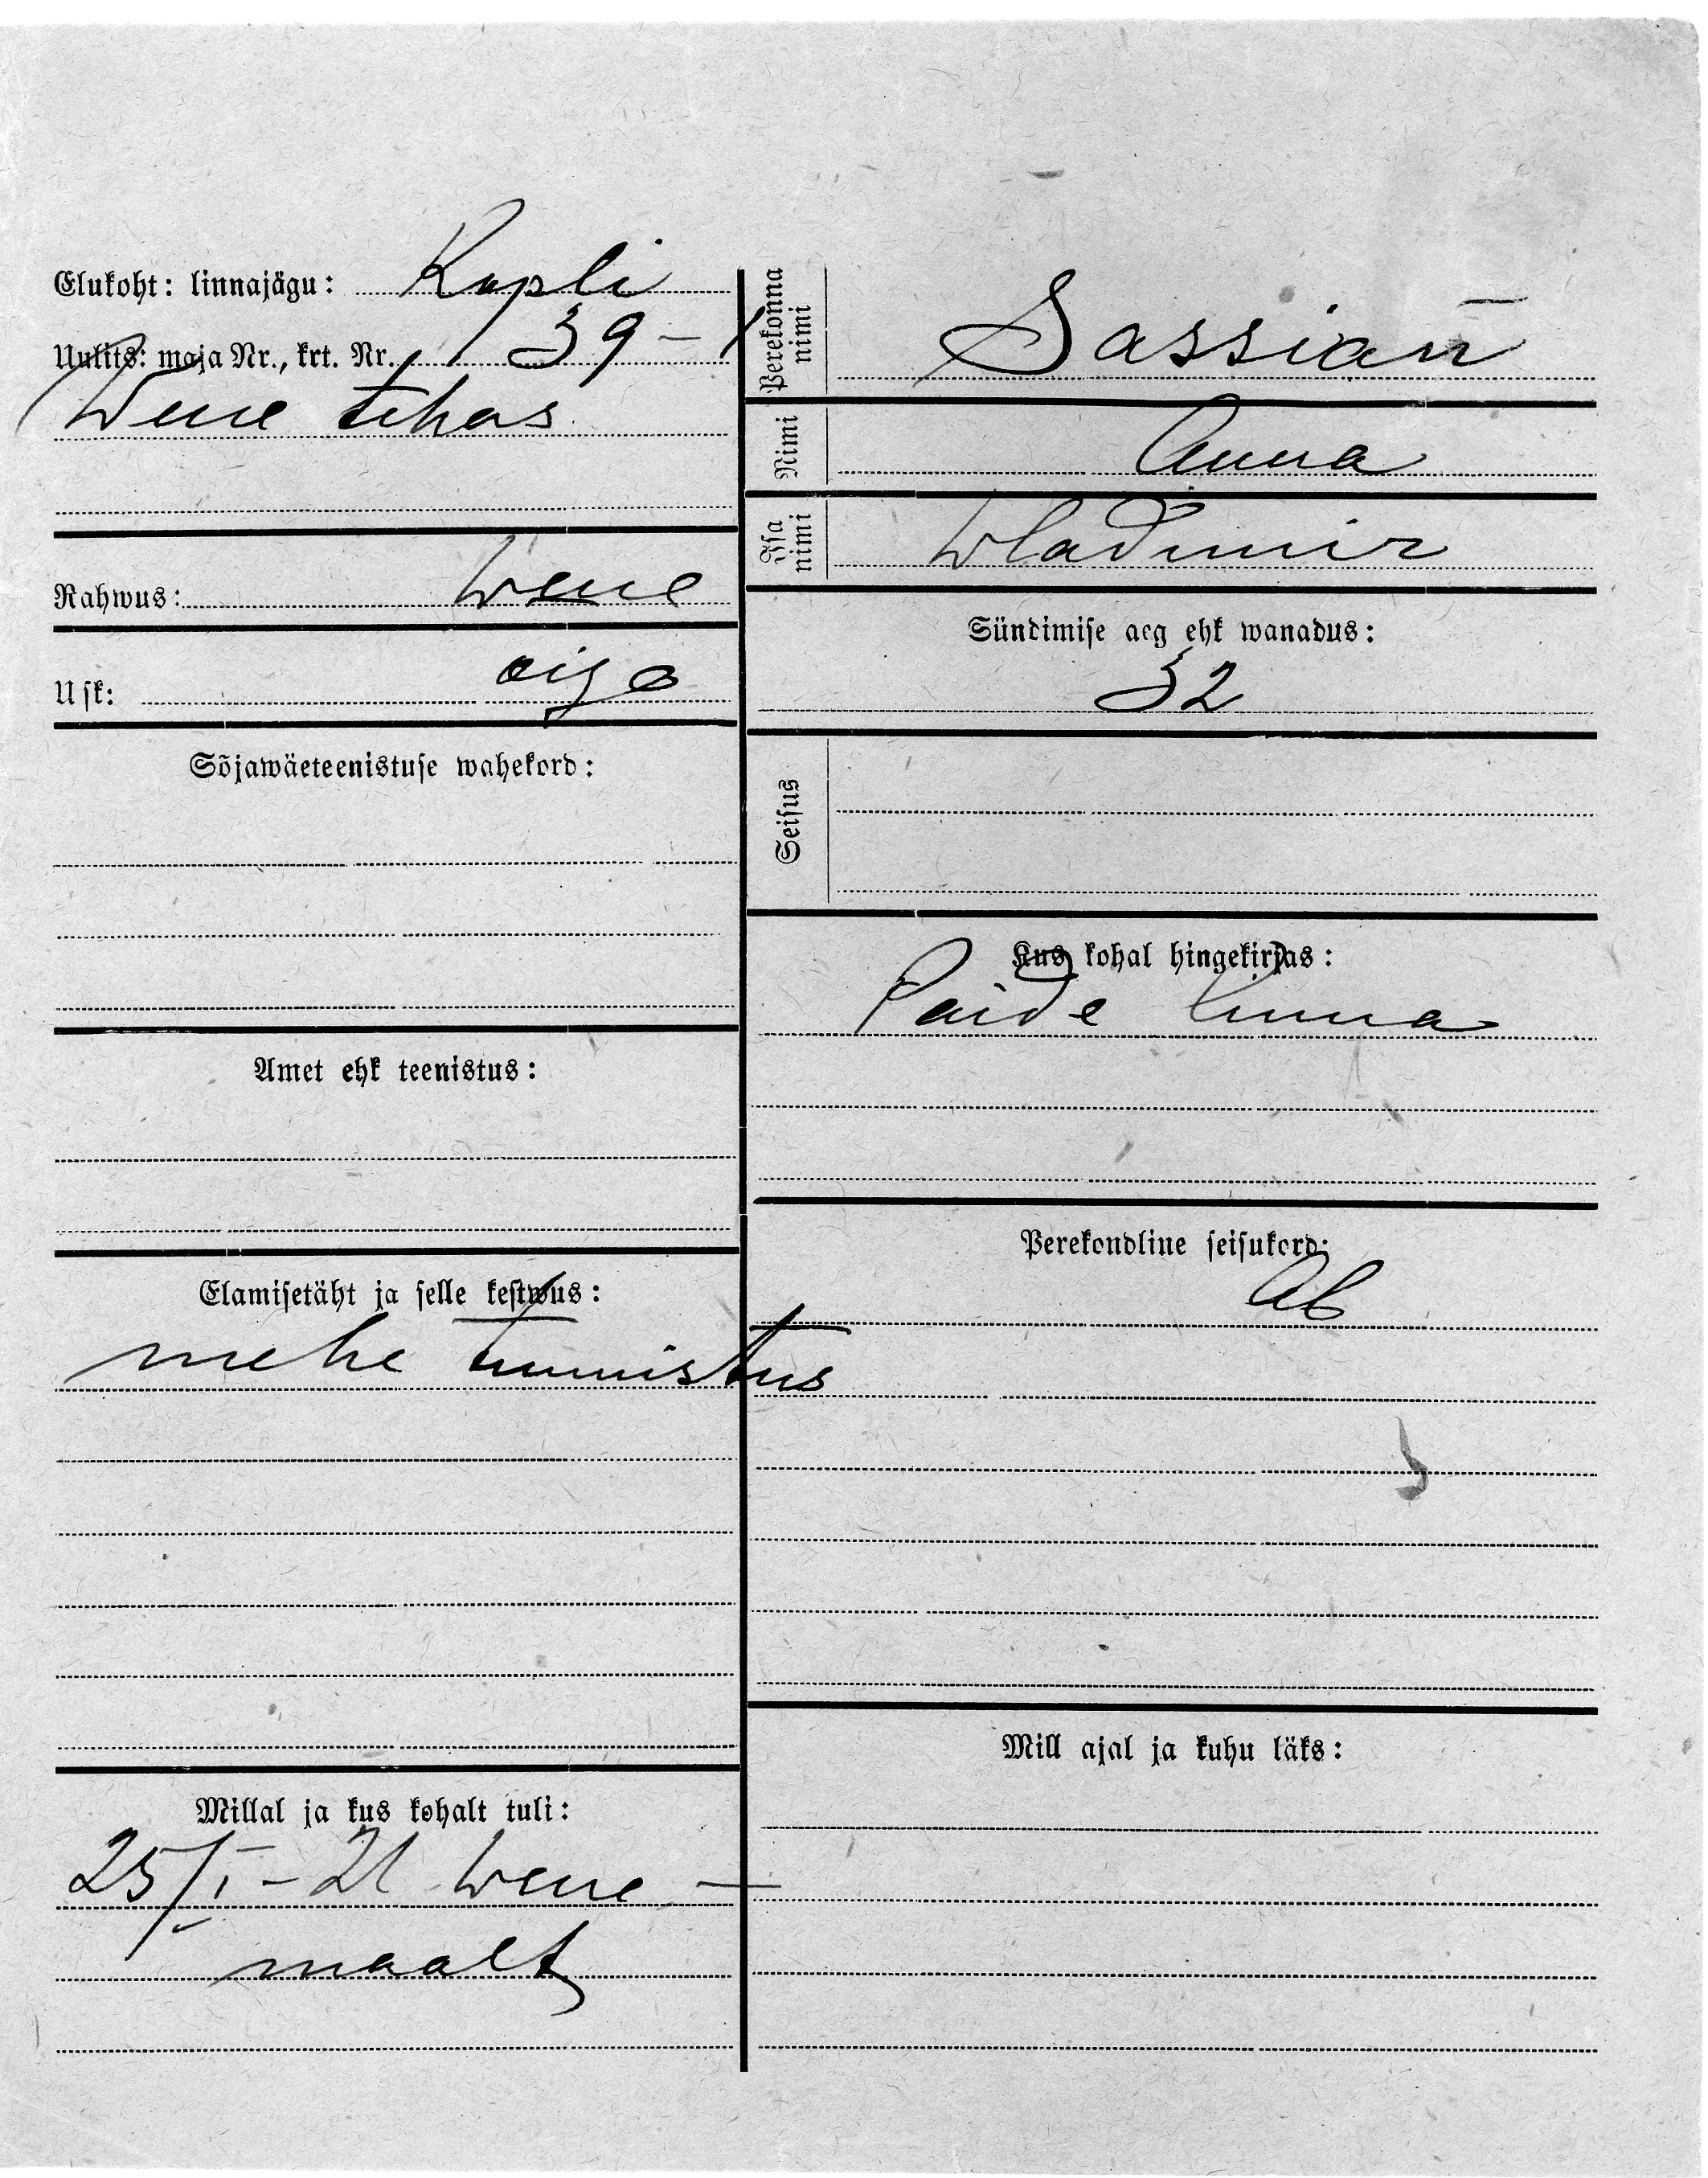 Elukoht: linnajägu: Kopli
Uulits: maja Nr., krt. Nr. 39 – 1
Wene tehas
Rahwus: Wene
Usk: õige
Sõjawäeteenistuse wahekord:
Amet ehk teenistus:
Elamisetäht ja selle kestwus:
mehe tunnistus
Millal ja kus kohalt tuli:
25/I – 21 Wene –
maalt
Perekonna nimi Sassian
Nimi Anna
Isa nimi Wladimir
Sündimise aeg ehk wanadus:
32
Seisus
Kus kohal hingekirjas:
Paide linna
Perekondline seisukord:
Ab
Mill ajal ja kuhu läks: